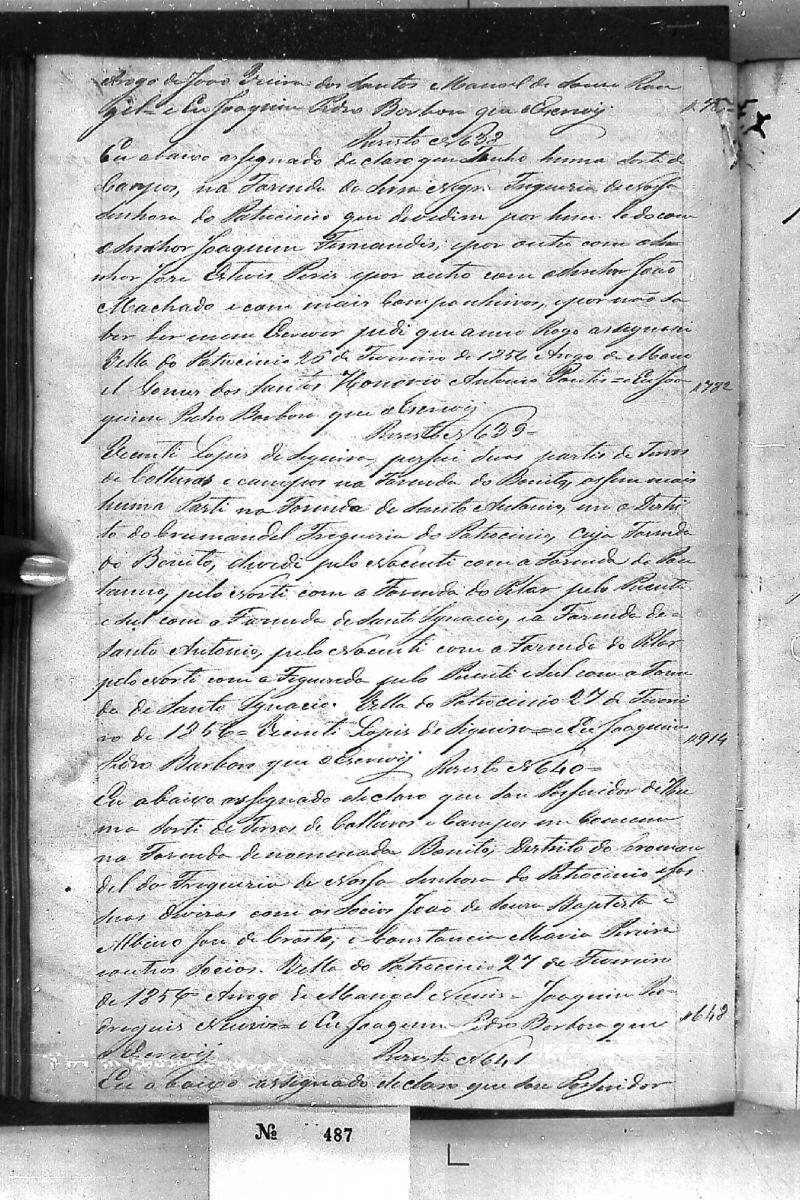 Arogo de João Vieira dos Santos Manoel de Souza Ran
gel = e Eu Joaquim Pedro Barboza que o Escrevij
Rezisto N 638
Eu abaixo assegnado declaro que tenho huma sorte de
Campos, na Fazenda da Serra Negra Freguezia de Nossa
Senhora do Patrocinio que devedem por hum lado com
o Senhor Joaquim Fernandes, epor outro com o Se
nhor José Esteves Peres epor outro com o Senhor João
Machado e com mais Companheiros, epor não sa
ber ler nem Escrever pedi que a meu Rogo assegnase
Villa do Patrocinio 26 de Fevereiro de 1856 Arogo de Mano
el Gomes dos Santos Honorio Antonio Pontes = e Eu Joa
quim Pedro Barboza que o Escrevij
#782
Rezisto N 639 =
Vicente Lopes de Siqueira, possui duas partes de Terras
de Colturas e campos na Fazenda do Bonito, assim mais
huma Parte na Fazenda de Santo Antonio, em o Destri
to do Crumandel Freguezia do Patrocinio, cuja Fazenda
do Bonito, devide pelo Nacente com a Fazenda do
pelo Norte com a Fazenda do Pilar pelo Puente
e Sul com a Fazenda de Santo Ignacio, e a Fazenda de =
Santo Antonio, pelo Nacente com a Fazenda do Pilar
pelo Norte com a Figuereda pelo Puente e Sul com a Fazen
da de Santo Ignacio. Villa do Patrocinio 27 de Feverei
ro de 1856 = Vicente Lopes de Siqueira = e Eu Joaquim
#914
Pedro Barboza que o Escrevij Rezisto N 640 =
Eu abaixo assegnado declaro que sou Possuidor de Hu
ma sorte de Terras de Colturas e Campos em Comum
na Fazenda denominada Bonito, Destrito do Croman
del da Freguezia de Nossa Senhora do Patrocinio e faz
suas devizas com os Socios João de Souza Baptista e
Albino José de Crasto, e Constancia Maria Pereira
e outros Socios. Villa do Patrocinio 27 de Fevereiro
de 1856 Arogo de Manoel Nunes = Joaquim Ro
drigues = e Eu Joaquim Pedro Barboza que
#648
o Escrevij Rezisto N 641
Eu abaixo assegnado declaro que sou Possuidor
№ 487